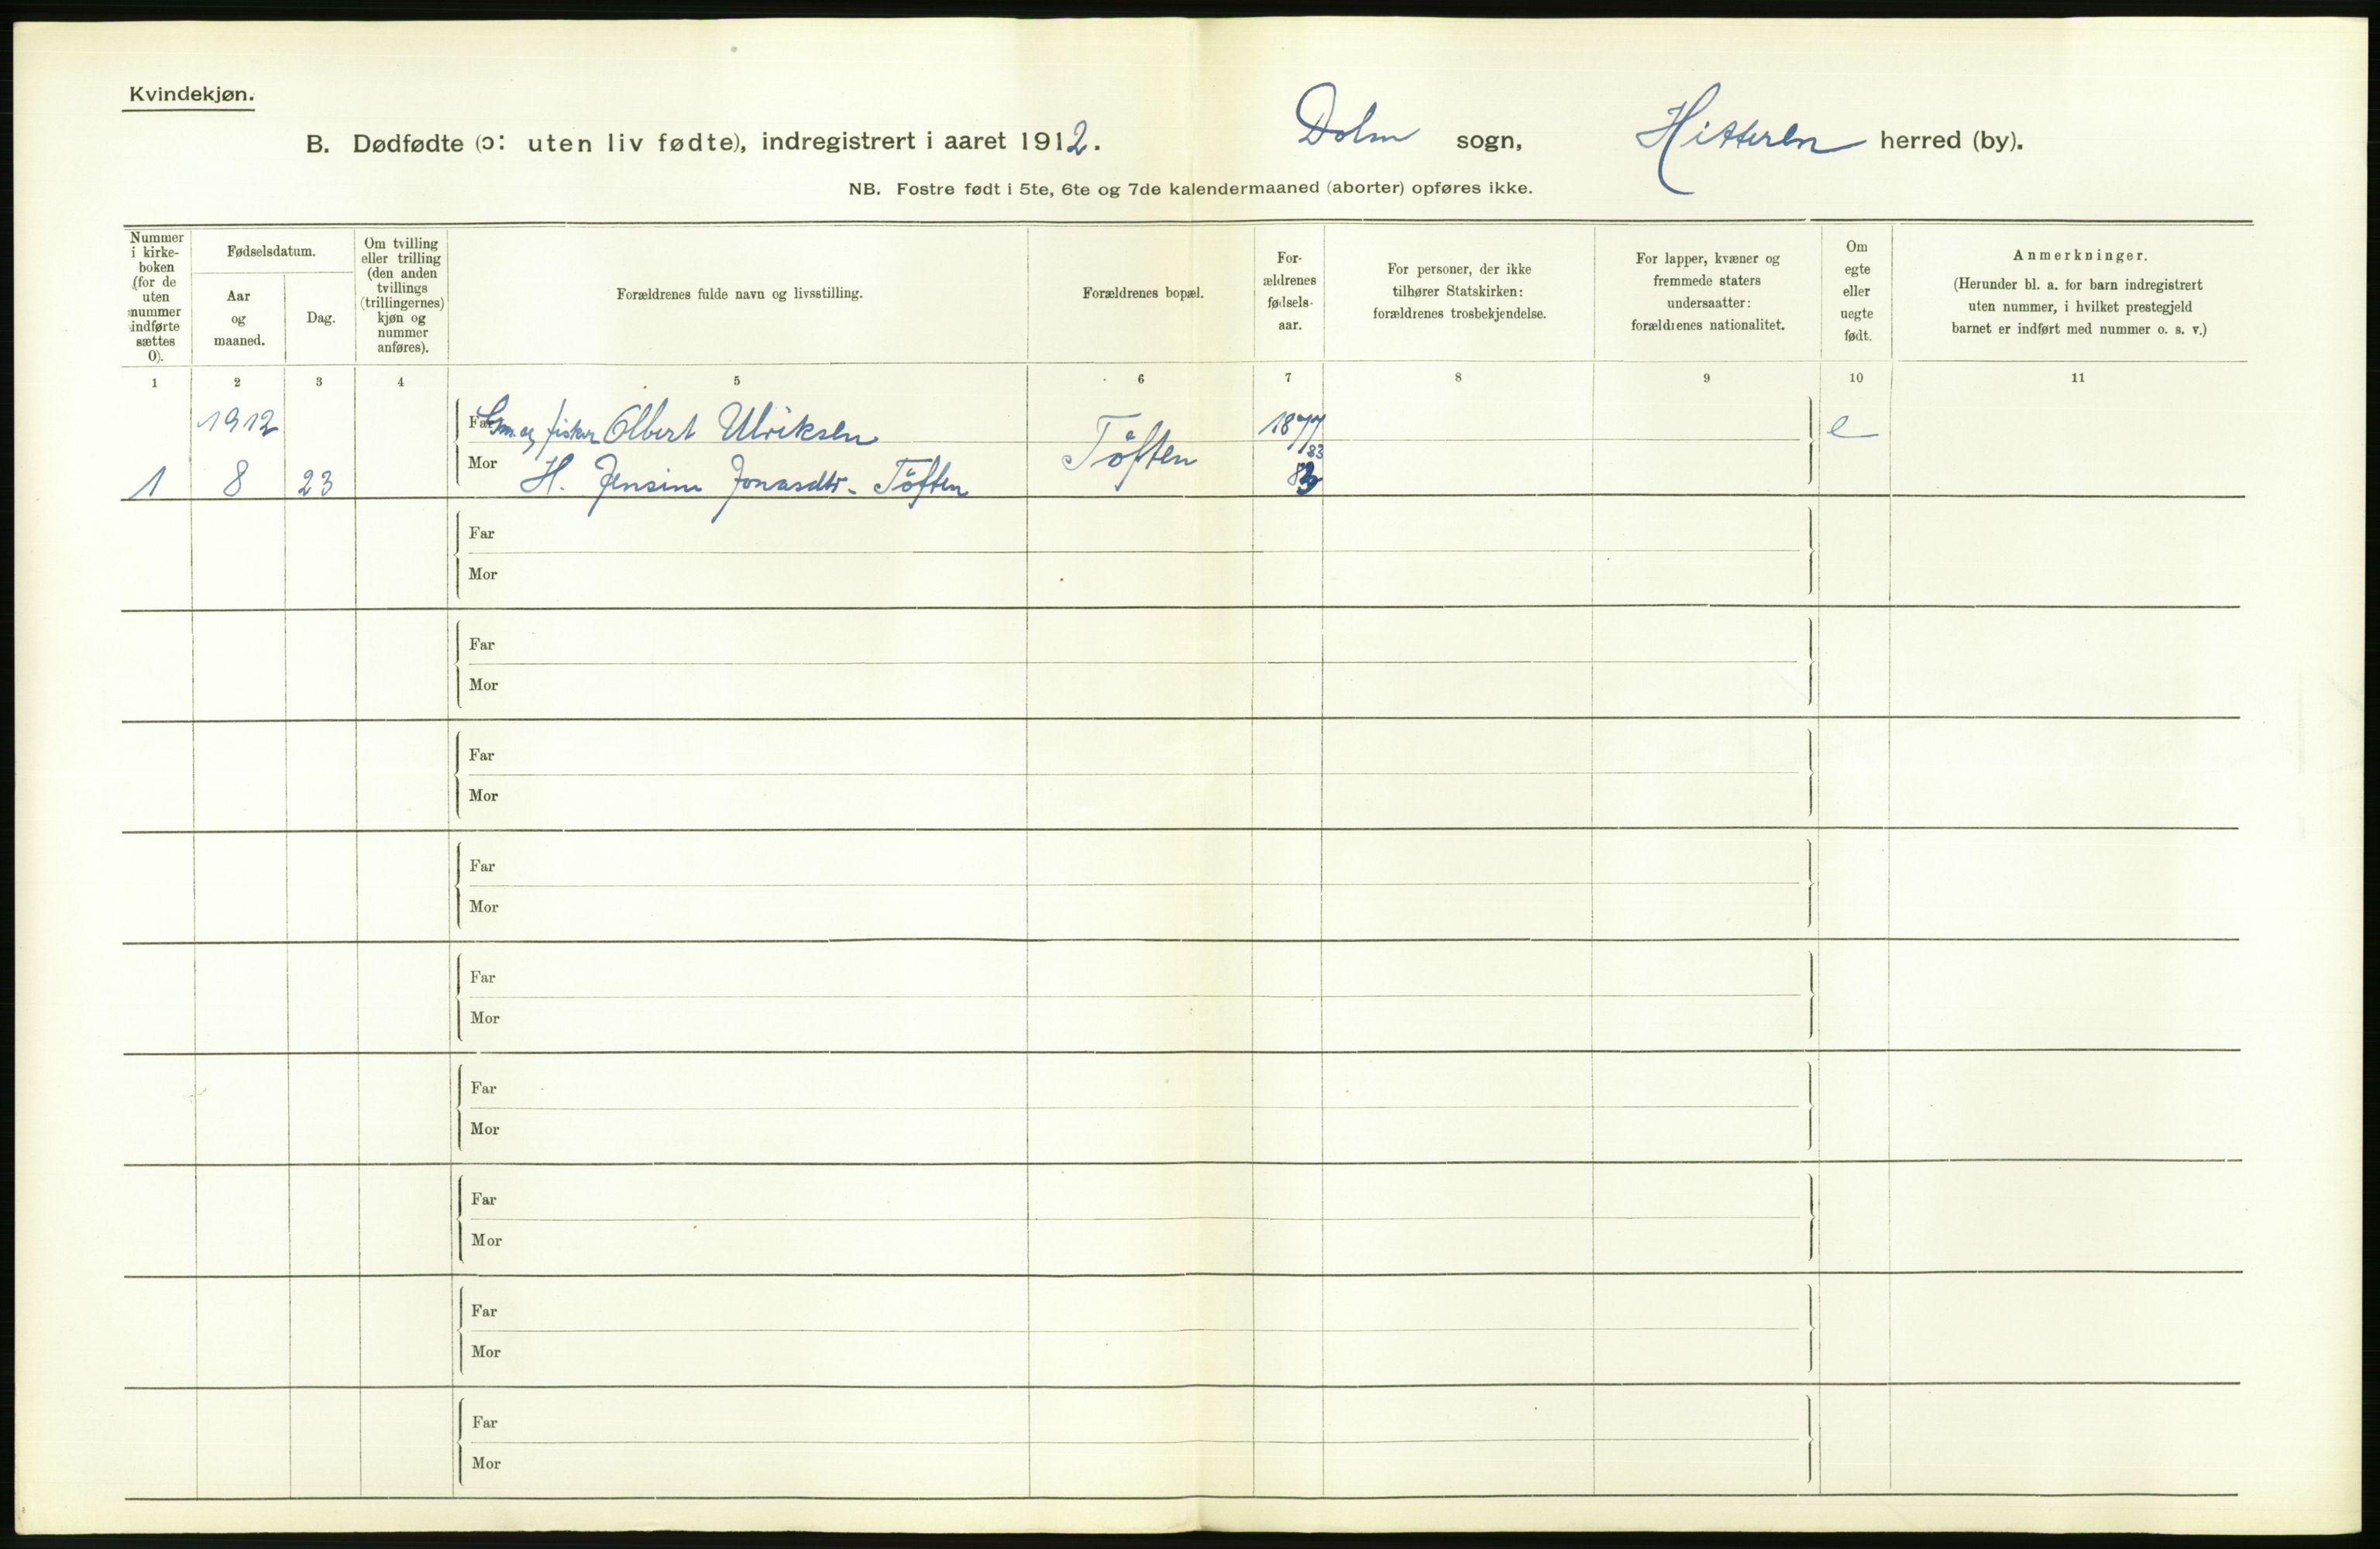 Kvindekjøn.
B. Dødfødte (ɔ: uten liv fødte), indregistrert i aaret 1912. Dolm sogn, Hitteren herred (by).
NB. Fostre født i 5te, 6te og 7de kalendermaaned (aborter) opføres ikke.
Nummer i kirke- boken (for de uten nummer indførte sættes 0).
Fødselsdatum.
Aar og maaned.
Dag.
Om tvilling eller trilling (den anden tvillings (trillingernes) kjøn og nummer anføres).
Forældrenes fulde navn og livsstilling.
Forældrenes bopæl.
For- ældrenes fødsels- aar.
For personer, der ikke tilhører Statskirken: forældrenes trosbekjendelse.
For lapper, kvæner og fremmede staters undersaatter: forældrenes nationalitet.
Om egte eller uegte født.
Anmerkninger.
(Herunder bl. a. for barn indregistrert uten nummer, i hvilket prestegjeld barnet er indført med nummer o. s. v.)
1 2 3 4 5 6 7 8 9 10 11
1912 Far Gm. og fisker Olbert Ulriksen 1877 e
83
1 8 23 Mor H. Jensine Jonasdtr. Töften Töften 83
Far
Mor
Far
Mor
Far
Mor
Far
Mor
Far
Mor
Far
Mor
Far
Mor
Far
Mor
Far
Mor